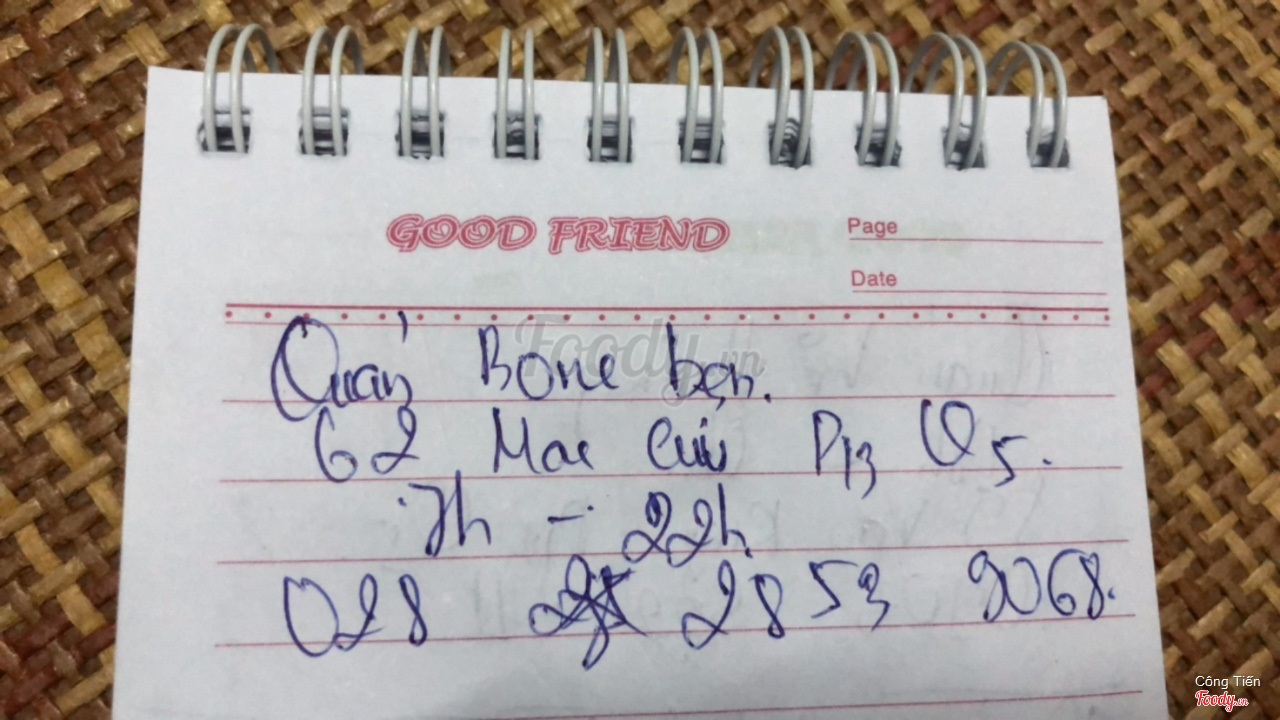 GOOD FRIEND
Page
Date
Foody.vn
Quán Bone bẹn.
62 Mac Cửu P13 Q5.
7h - 22h
028 2853 9068.
Công Tiến
Foody.vn